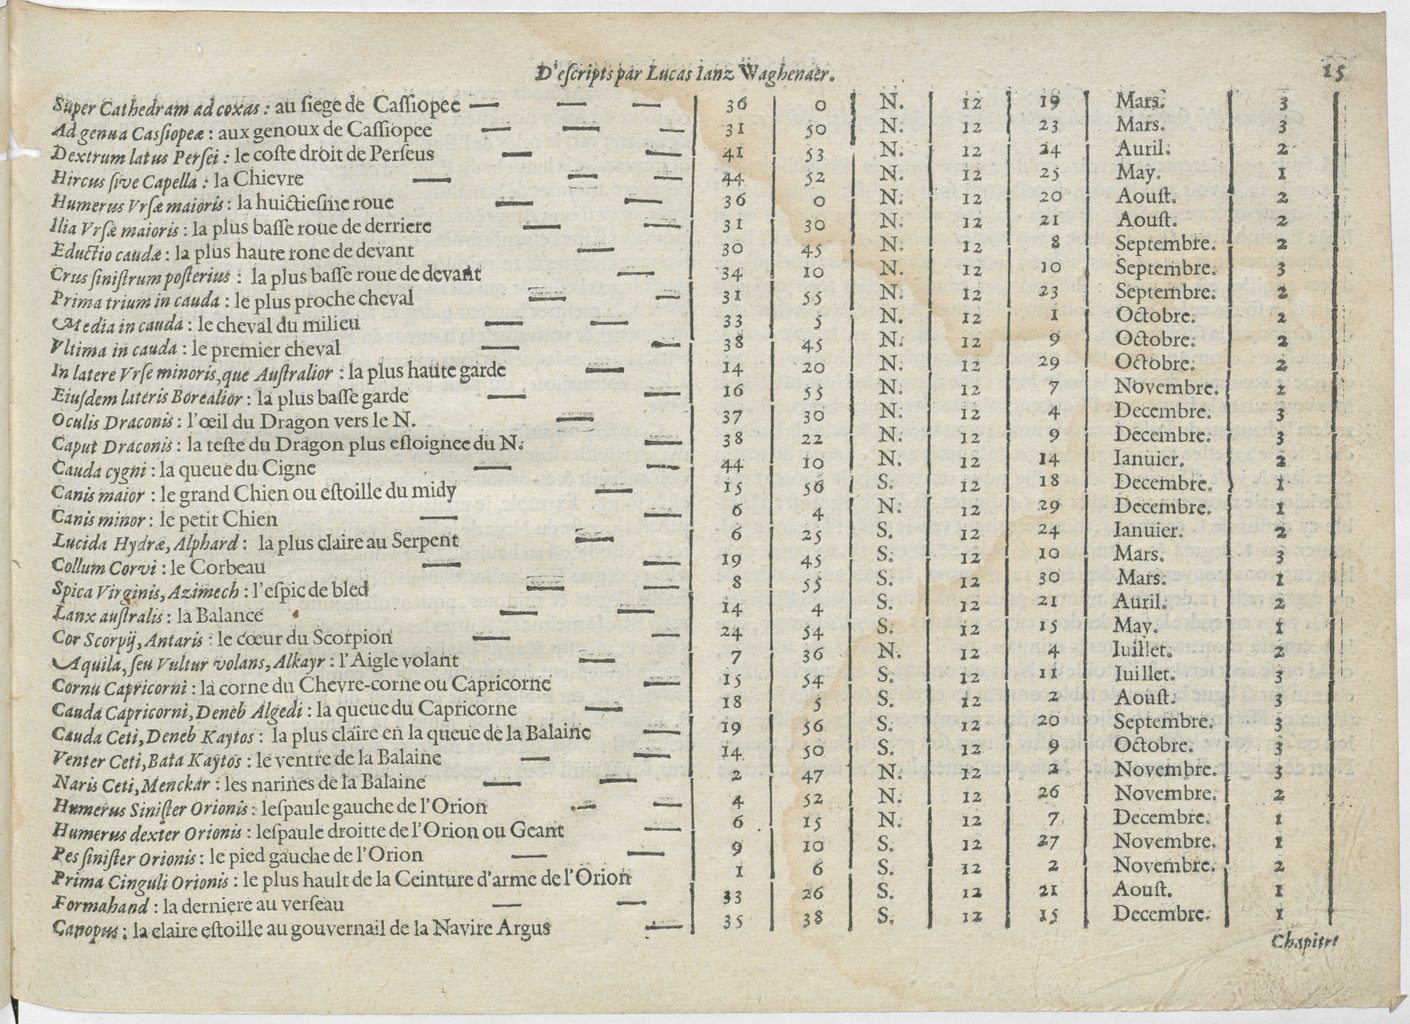 D'escripts par Lucas Ianz Waghenaer. 15
Super Cathedram ad coxas : au siege de Cassiopee — — — 36 0 N. 12 19 Mars. 3
Ad genua Cassiopeæ : aux genoux de Cassiopee — — — 31 50 N. 12 23 Mars. 3
Dextrum latus Persei : le coste droit de Perseus — — 41 53 N. 12 24 Auril. 2
Hircus sive Capella : la Chievre — — — 44 52 N. 12 25 May. 1
Humerus Vrsæ maioris : la huictiesme roue — — 36 0 N. 12 20 Aoust. 2
Ilia Vrsæ maioris : la plus basse roue de derriere — — 31 30 N. 12 21 Aoust. 2
Eductio caudæ : la plus haute rone de devant — 30 45 N. 12 8 Septembre. 2
Crus sinistrum posterius : la plus basse roue de devant — 34 10 N. 12 10 Septembre. 3
Prima trium in cauda : le plus proche cheval — — 31 55 N. 12 23 Septembre. 2
Media in cauda : le cheval du milieu — — 33 5 N. 12 1 Octobre. 2
Vltima in cauda : le premier cheval — — 38 45 N. 12 9 Octobre. 2
In latere Vrse minoris, que Australior : la plus haute garde — 14 20 N. 12 29 Octobre. 2
Eiusdem lateris Borealior : la plus basse garde — — 16 55 N. 12 7 Novembre. 2
Oculis Draconis : l'œil du Dragon vers le N. — 37 30 N. 12 4 Decembre. 3
Caput Draconis : la teste du Dragon plus esloignee du N. — 38 22 N. 12 9 Decembre. 3
Cauda cygni : la queue du Cigne — — 44 10 N. 12 14 Ianuier. 2
Canis maior : le grand Chien ou estoille du midy — 15 56 S. 12 18 Decembre. 1
Canis minor : le petit Chien — — 6 4 N. 12 29 Decembre. 1
Lucida Hydræ, Alphard : la plus claire au Serpent — 6 25 S. 12 24 Ianuier. 2
Collum Corvi : le Corbeau — — 19 45 S. 12 10 Mars. 3
Spica Virginis, Azimech : l'espic de bled — — 8 55 S. 12 30 Mars. 1
Lanx australis : la Balance — — 14 4 S. 12 21 Auril. 2
Cor Scorpij, Antaris : le cœur du Scorpion — — 24 54 S. 12 15 May. 1
Aquila, seu Vultur volans, Alkayr : l'Aigle volant — 7 36 N. 12 4 Iuillet. 2
Cornu Capricorni : la corne du Chevre-corne ou Capricorne — 15 54 S. 12 11 Iuillet. 3
Cauda Capricorni, Deneb Algedi : la queue du Capricorne — 18 5 S. 12 2 Aoust. 3
Cauda Ceti, Deneb Kaytos : la plus claire en la queue de la Balaine — 19 56 S. 12 20 Septembre. 3
Venter Ceti, Bata Kaytos : le ventre de la Balaine — — 14 50 S. 12 9 Octobre. 3
Naris Ceti, Menckar : les narines de la Balaine — — 2 47 N. 12 2 Novembre. 3
Humerus Sinister Orionis : lespaule gauche de l'Orion — — 4 52 N. 12 26 Novembre. 2
Humerus dexter Orionis : lespaule droitte de l'Orion ou Geant — 6 15 N. 12 7 Decembre. 1
Pes sinister Orionis : le pied gauche de l'Orion — — 9 10 S. 12 27 Novembre. 1
Prima Cinguli Orionis : le plus hault de la Ceinture d'arme de l'Orion 1 6 S. 12 2 Novembre. 2
Formahand : la derniere au verseau — — 33 26 S. 12 21 Aoust. 1
Canopus : la claire estoille au gouvernail de la Navire Argus — 35 38 S. 12 15 Decembre. 1
Chapitre